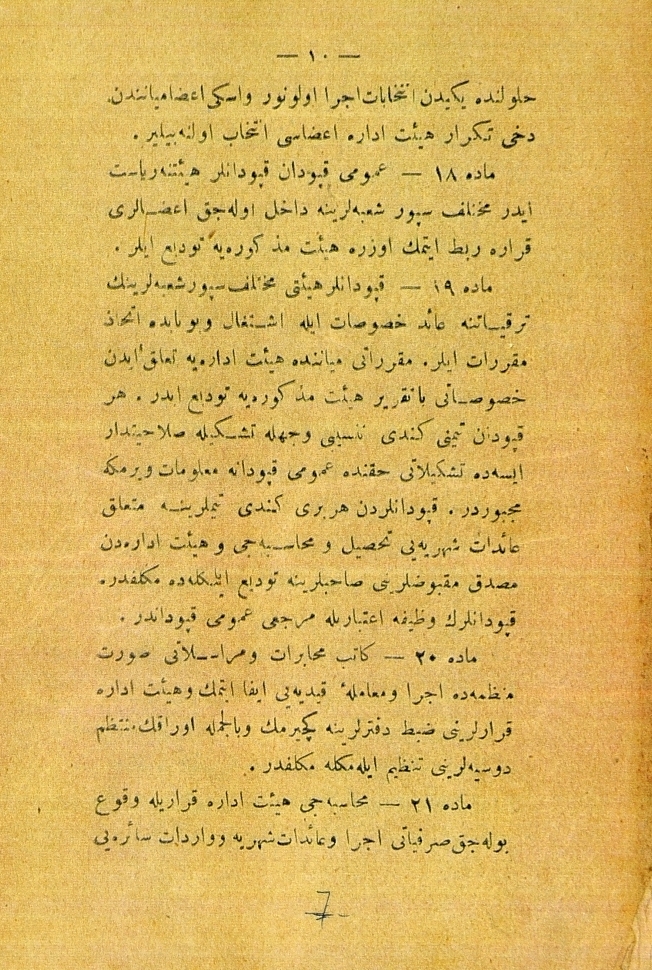 — ١٠ —
حلولنده یكیدن انتخابات اجرا اولونور واسكی اعضا میانندن
دخی تكرار هیئت اداره اعضاسی انتخاب اولنه بیلیر .
ماده ١٨ — عمومی قپودان قپودانلر هیئتنه ریاست
ایدر مختلف سپور شعبه لرینه داخل اوله جق اعضالری
قراره ربط ایتمك اوزره هیئت مذكوره یه تودیع ایلر .
ماده ١٩ — قپودانلر هیئتی مختلف سپور شعبه لرینك
ترقیاتنه عائد خصوصات ایله اشتغال وبوبابده اتخاذ
مقررات ایلر. مقرراتی میاننده هیئت اداره یه تعلق ایدن
خصوصاتی باتقریر هیئت مذكوره یه تودیع ایدر . هر
قپودان تیمنی كندی تنسیبی وجهله تشكیله صلاحیتدار
ایسه ده تشكیلاتی حقنده عمومی قپودانه معلومات ویرمكه
مجبوردر . قپودانلردن هر بری كندی تیملرینه متعلق
عائدات شهریه یی تحصیل و محاسبه جی و هیئت اداره دن
مصدق مقبوضلرینی صاحبلرینه تودیع ایتمكله ده مكلفدر.
قپودانلرك وظیفه اعتباریله مرجعی عمومی قپوداندر .
ماده ٢٠ — كاتب مخابرات ومراسلاتی صورت
منظمه ده اجرا ومعاملهٔ قیدیه یی ایفا ایتمك وهیئت اداره
قرارلرینی ضبط دفترلرینه كچیرمك وبالجمله اوراقك منتظم
دوسیه لرینی تنظیم ایله مكله مكلفدر .
ماده ٢١ — محاسبه جی هیئت اداره قراریله وقوع
بوله جق صرفیاتی اجرا وعائدات شهریه وواردات سائره یی
7